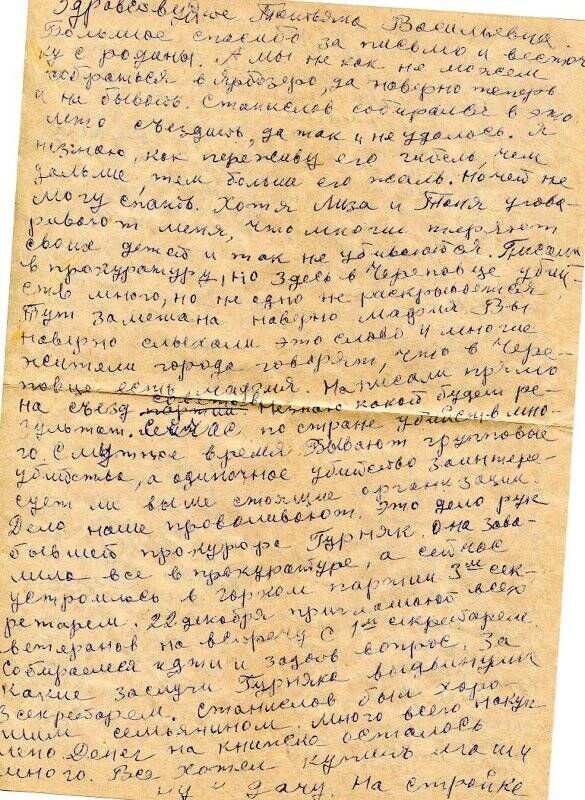 Здравствуйте Татьяна Васильевна.
Большое спасибо за письмо и весточ
ку с родины. А мы не как не можем
собраться в Ярбозеро, да наверно теперь
и не бывать. Станислав собирался в это
лето съездить, да так и не удалось. Я
незнаю, как переживу его гибель, чем
дальше, тем больше его жаль. Ночей не
могу спать. Хотя Лиза и Таня угова-
ривают меня, что многие теряют
своих детей и так не убиваются. Писали
в прокуратуру, но здесь в Череповце убий-
ств много, но не одно не раскрывается
Тут замешана наверно мафия Вы
наверно слыхали это слово и многие
жители города говорят, что в Чере-
повце есть мафия. Написали прямо
на съезд советов незнаю какой будет ре-
зультат. Сейчас по стране убийств мно-
го. Смутное время. Бывают групповые
убийства, а одиночное убийство заинтере-
сует ли выше стоящие организации
Дело наше проваливают. Это дело рук
бывшей прокурора Гурняк. Она зава-
лила все в прокуратуре, а сейчас
устроилась в горком партии 3м сек-
ретарем. 22 декабря приглашают всех
ветеранов на встречу с 1м секретарем.
Собираемся идти и задать вопрос. За
какие заслуги Гурняка выдвинули
3 секретарем. Станислав был хоро-
шим семьянином. Много всего накуп
лено. Денег на книжке осталось
много. Все хотел купить маши
ну и дачу. На стройке